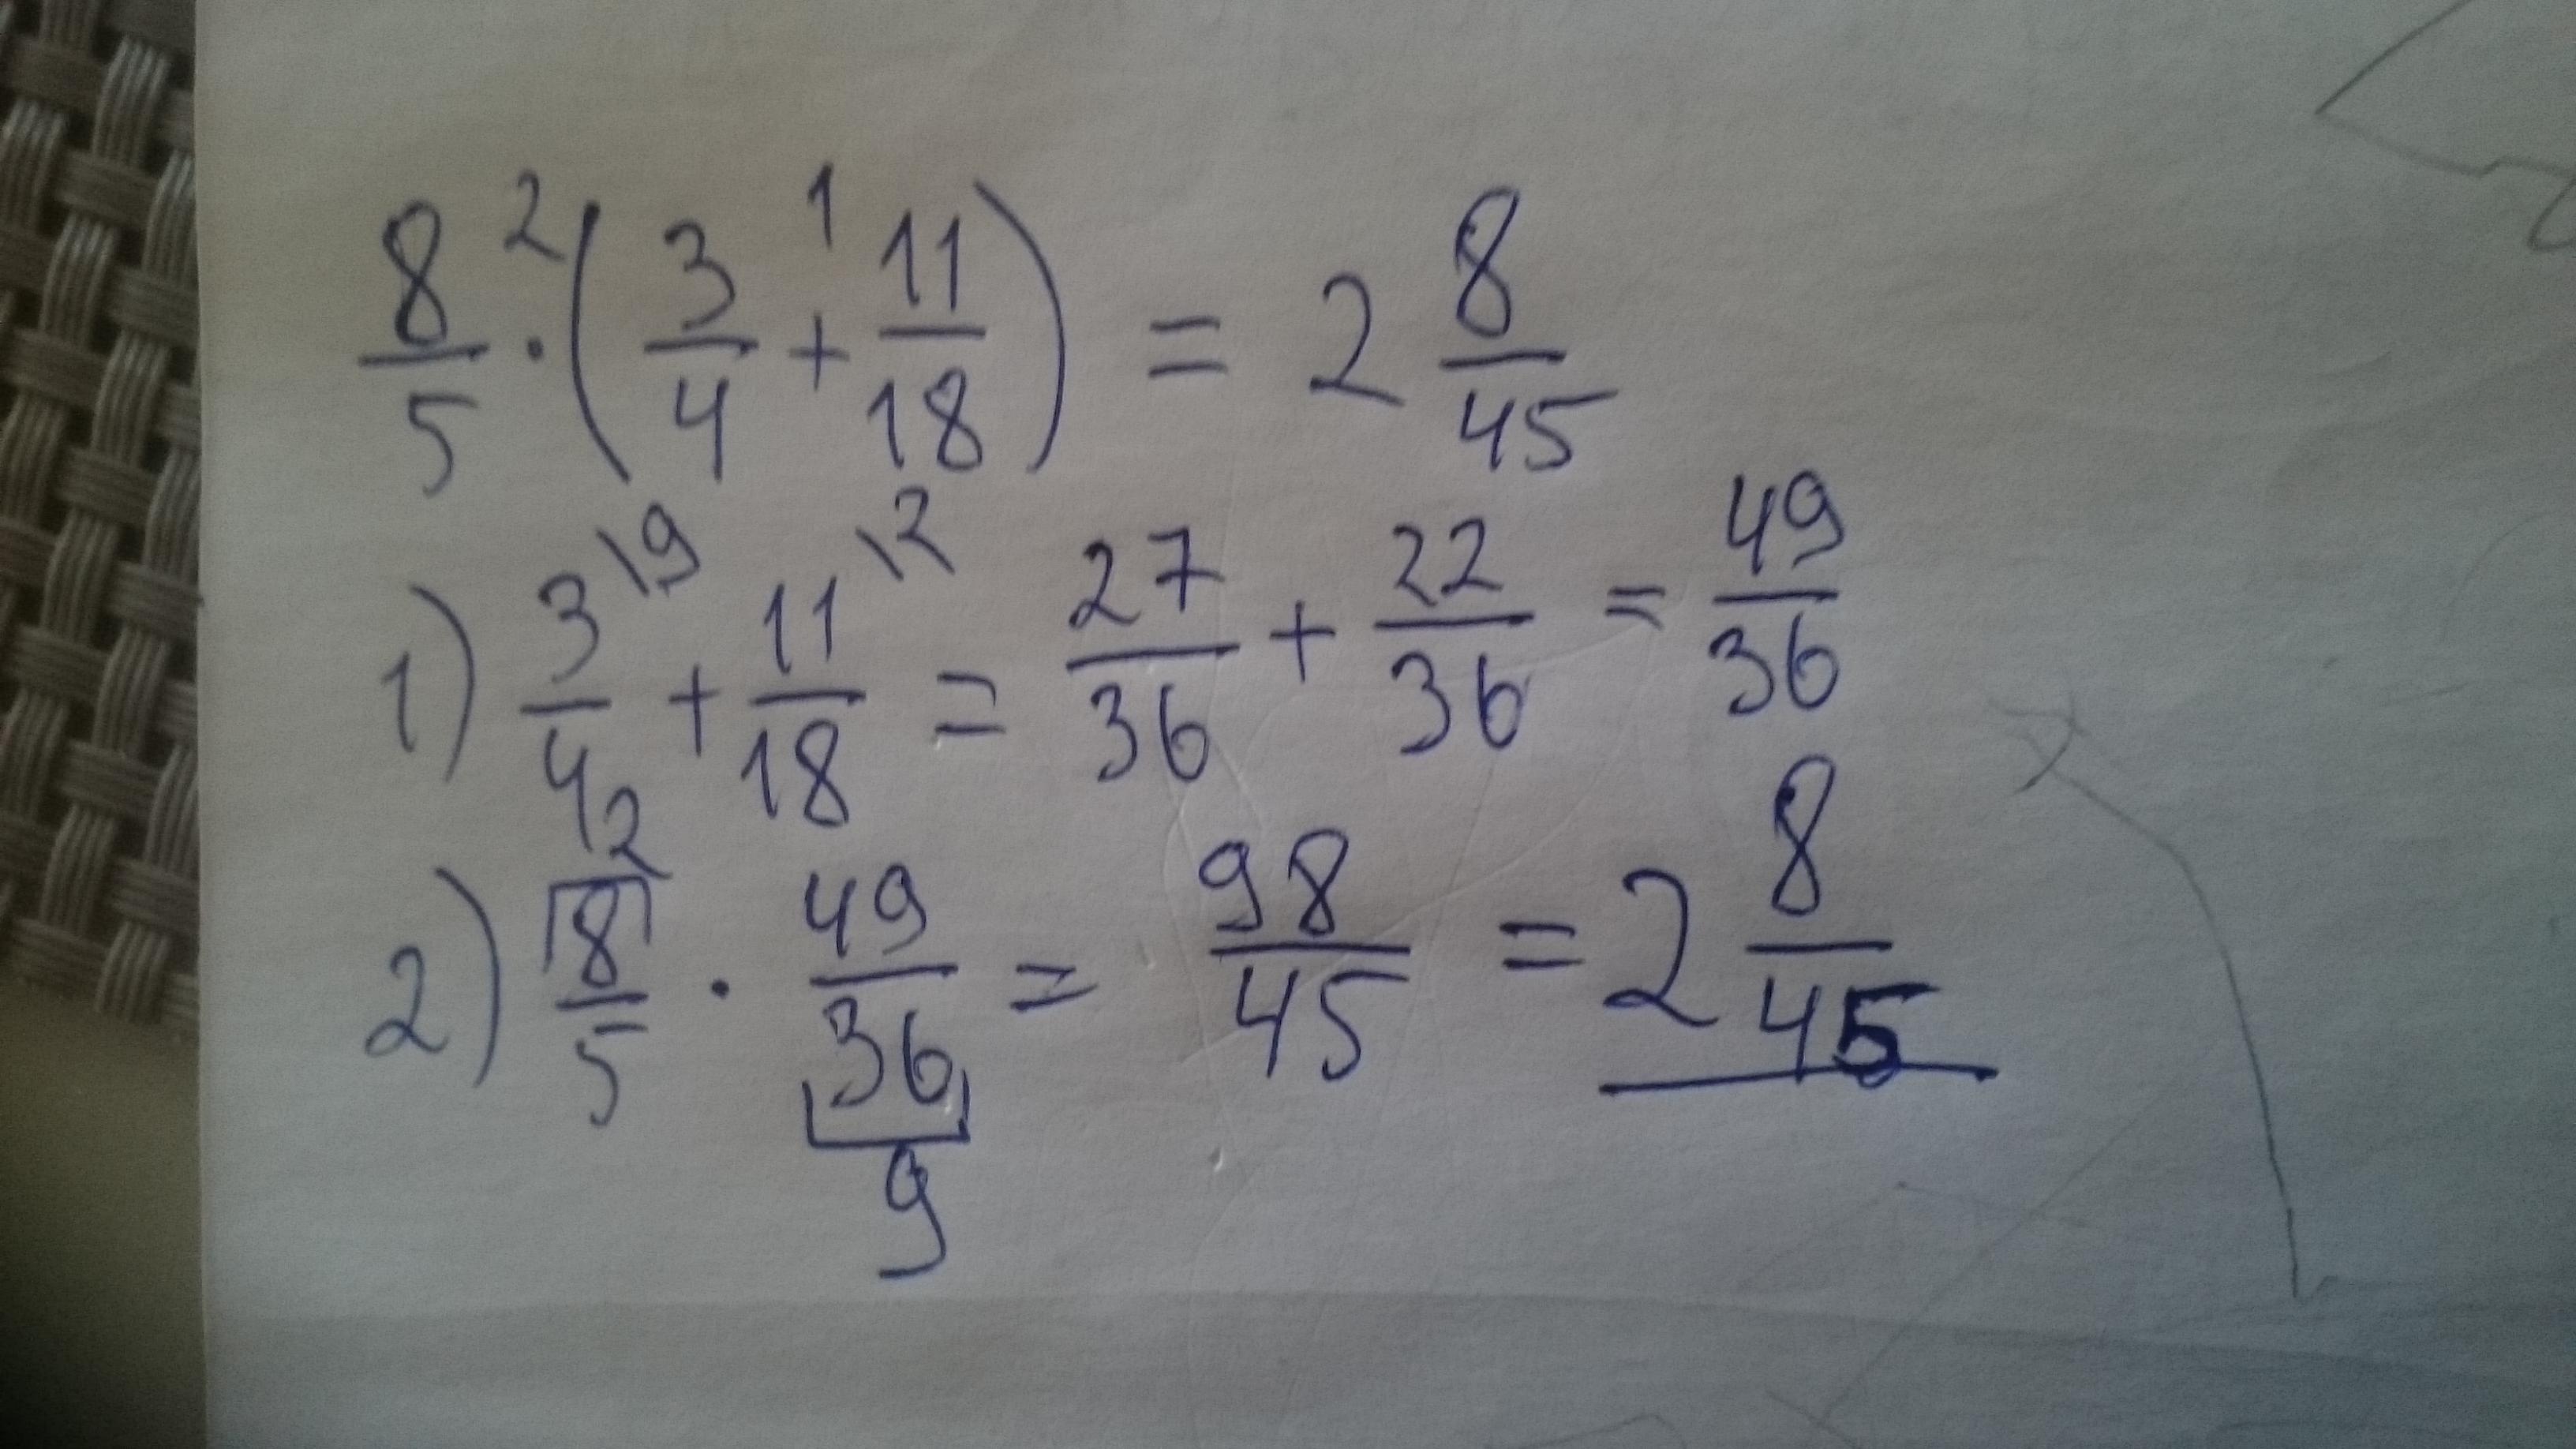 8/5 ·² (3/4 +¹ 11/18) = 2 8/45
1) 3/4 \9 + 11/18 \2 = 27/36 + 22/36 = 49/36
2) 8/5 · 49/36 = 98/45 = 2 8/45
2
9